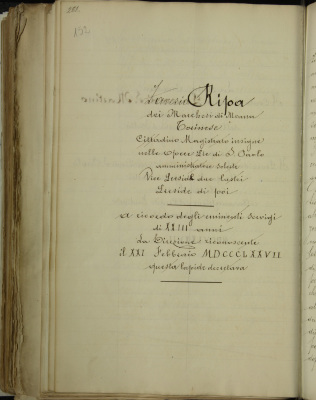 Ripa
dei Marchesi di Meana
Torinese
Cittadino Magistrato insigne
nelle Opere Pie di S. Paolo
amministratore solerte
Vice Presid. due lustri
Preside di poi
A ricordo degli eminenti servigi
di XXIII anni
La Direzione riconoscente
il XXI Febbraio MDCCCLXXVII
questa lapide decretava